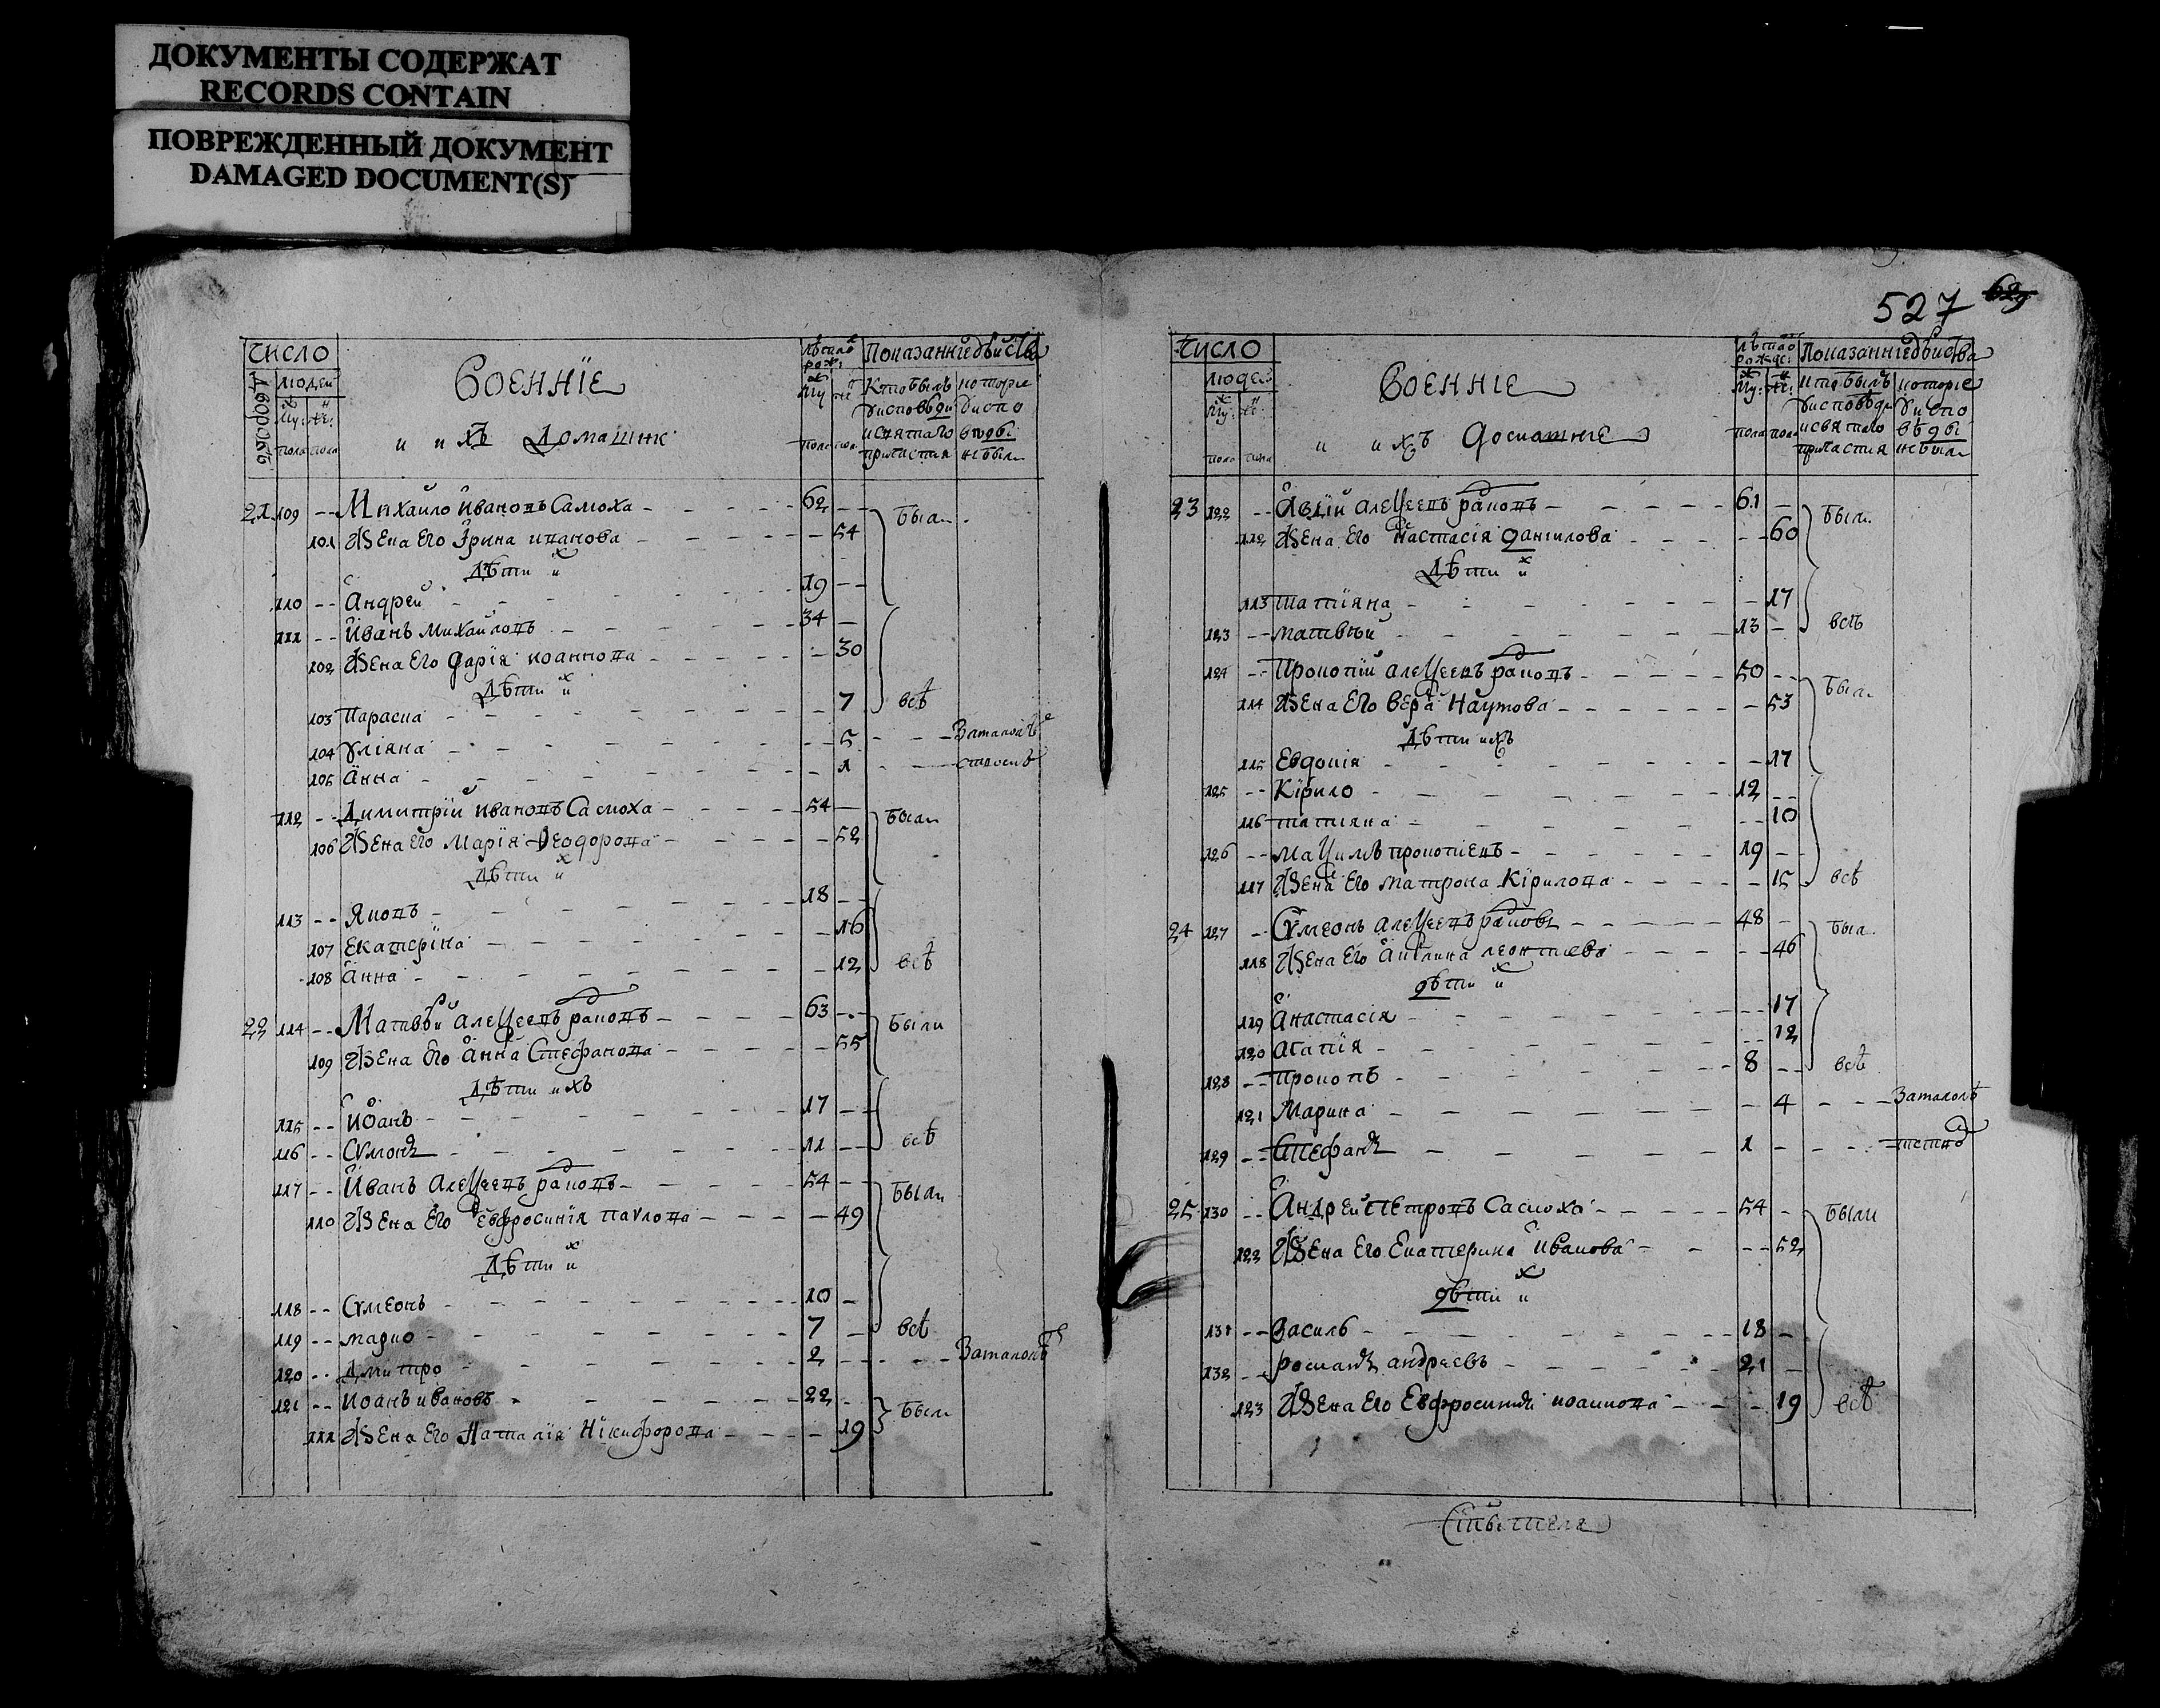 ДОКУМЕНТЫ СОДЕРЖАТ
RECORDS CONTAIN
ПОВРЕЖДЕННЫЙ ДОКУМЕНТ
DAMAGED DOCUMENT(S)
Число
людей
Дворовъ
Му: же:
пола пола
Военнїе
и ихъ домашнїе
Показанїе дѣйства
Кто былъ которіе
у исповѣди у испо
и святаго вѣди
причастия не были
21 109 -- Михайло Ивановъ Самоха - - - 62 -- были
101 Жена Его Ірина иванова - - - 54
Дѣти их
110 -- Андрей - - - 19 --
111 -- Иванъ Михайловъ - - - 34 --
102 Жена Его Дарїя иоаннова - - - 30
Дѣти их
103 Параска - - - 7 всѣ
104 Уліяна - - - 5 - - - За малолѣ
105 Анна - - - 1 - - - ством
112 -- Димитрїй Ивановъ Самоха - - - 54 -- были
106 Жена Его Марїя Феодорова - - - 52
Дѣти их
113 -- Яковъ - - - 18 --
107 Екатерїна - - - 16
108 Анна - - - 12 всѣ
22 114 -- Матвѣй Алексеевъ раковъ - - - 63 -- были
109 Жена Его Анна Стефанова - - - 55
Дѣти ихъ
115 -- Иоанъ - - - 17 --
116 -- Сѵмонъ - - - 11 -- всѣ
117 -- Иванъ Алексеевъ раковъ - - - 54 -- были
110 Жена Его Евфросинїя павлова - - - 49
Дѣти их
118 -- Сѵмеонъ - - - 10 --
119 -- марко - - - 7 -- всѣ
120 -- Дмитро - - - 2 -- - - За малолѣ
121 -- иоанъ ивановъ - - - 22 -- были
111 Жена Его Наталїя Нїкифорова - - - 19
527 629
Число
людей
Му: же:
пола пола
Военнїе
и ихъ домашнїе
Показанїе дѣйства
кто былъ которіе
у исповѣди у испо
и святаго вѣди
причастия не были
23 122 -- Авлїй алексеевъ раковъ - - - 61 -- были
112 Жена Его Настасїя данилова - - - 60
Дѣти их
113 татїяна - - - 17
123 -- матвѣй - - - 13 -- всѣ
124 -- Прокопїй алексеевъ раковъ - - - 50 -- были
114 Жена Его вера Наумова - - - 53
Дѣти ихъ
115 Евдокія - - - 17
125 -- Кїрило - - - 12 --
116 татияна - - - 10
126 -- Максимъ прокопиевъ - - - 19 --
117 Жена Его матрона Кїрилова - - - 15 всѣ
24 127 -- Сѵмеонъ алексеевъ раковъ - - - 48 -- были
118 Жена Его Акилина леонтиева - - - 46
дѣти их
119 Анастасїя - - - 17
120 агапїя - - - 12
128 -- прокопъ - - - 8 -- всѣ
121 Марина - - - 4 - - - За малолѣ
129 -- Стефанъ - - - 1 - - -
25 130 -- Андрей Петровъ Самоха - - - 54 -- были
122 Жена Его Екатерина Иванова - - - 52
дѣти их
131 -- Василь - - - 18 --
132 -- романъ андреевъ - - - 21 --
123 Жена Его Евфросиния иоаннова - - - 19 всѣ